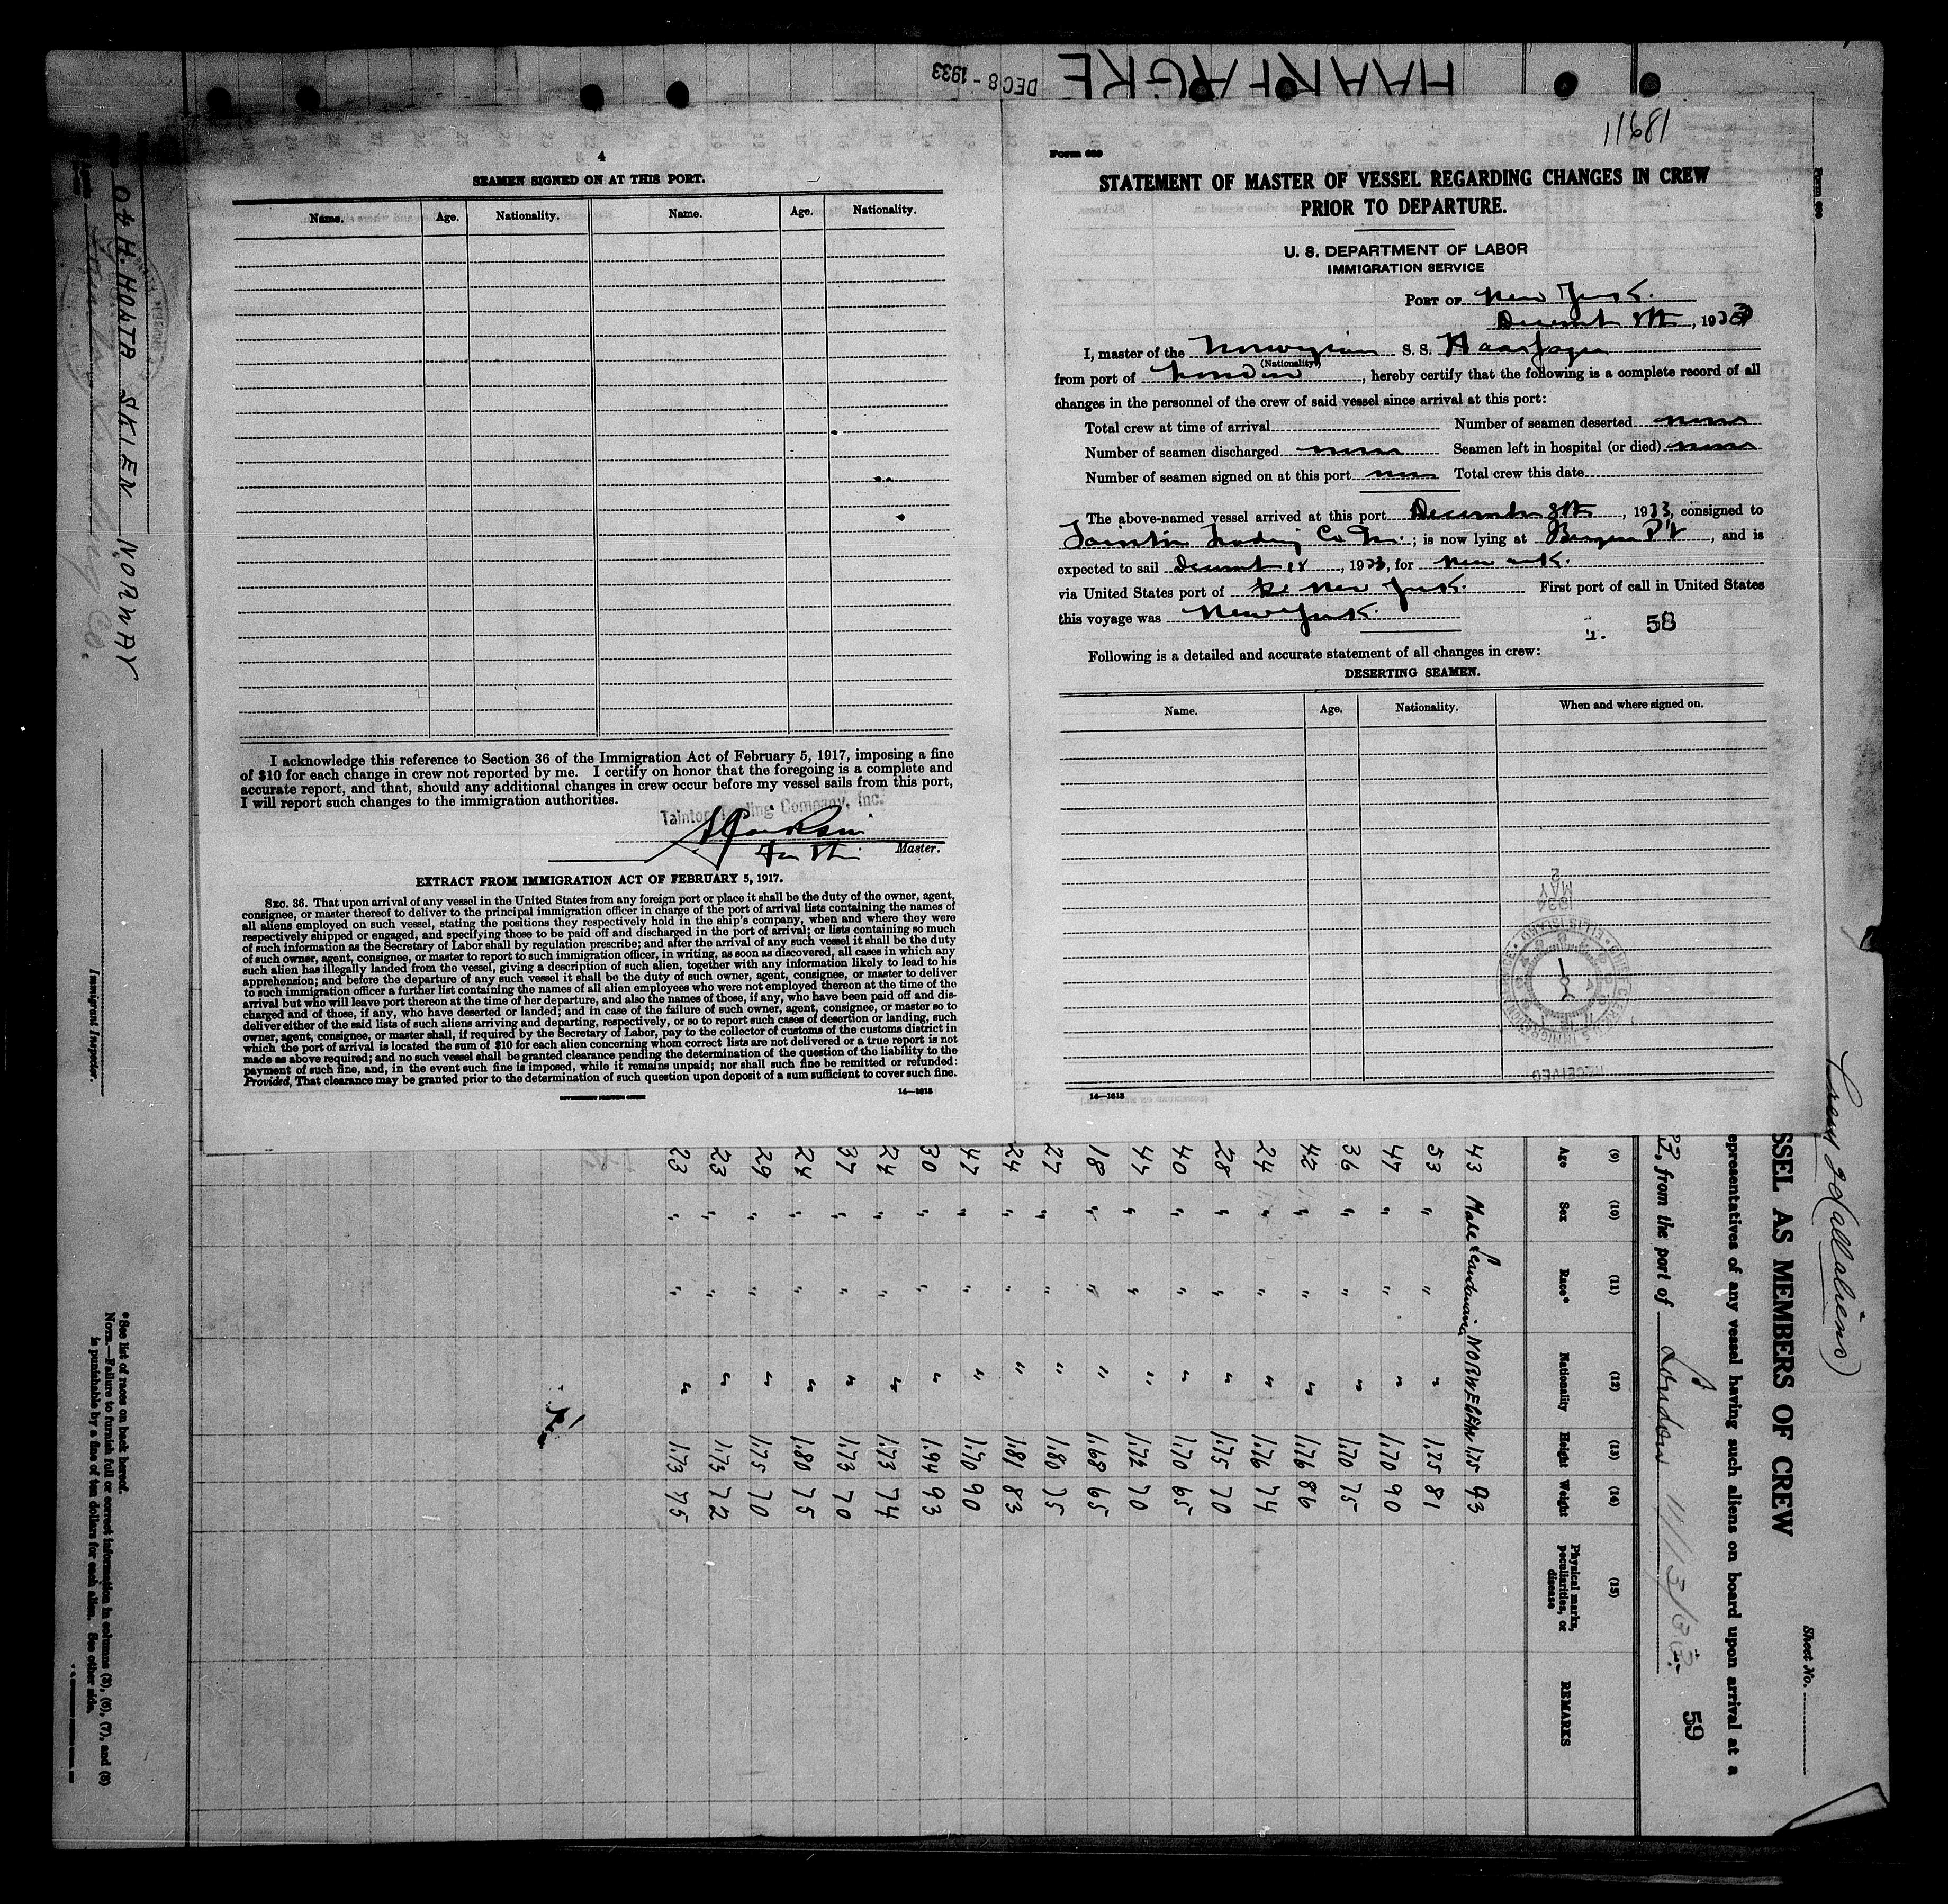 HAARFAGRE
DEC 8 - 1933
4
SEAMEN SIGNED ON AT THIS PORT.
Name. Age. Nationality. Name. Age. Nationality.
I acknowledge this reference to Section 36 of the Immigration Act of February 5, 1917, imposing a fine
of $10 for each change in crew not reported by me. I certify on honor that the foregoing is a complete and
accurate report, and that, should any additional changes in crew occur before my vessel sails from this port,
I will report such changes to the immigration authorities.
Tainton Trading Company, Inc.
Master.
EXTRACT FROM IMMIGRATION ACT OF FEBRUARY 5, 1917.
SEC. 36. That upon arrival of any vessel in the United States from any foreign port or place it shall be the duty of the owner, agent,
consignee, or master thereof to deliver to the principal immigration officer in charge of the port of arrival lists containing the names of
all aliens employed on such vessel, stating the positions they respectively hold in the ship's company, when and where they were
respectively shipped or engaged, and specifying those to be paid off and discharged in the port of arrival; or lists containing so much
of such information as the Secretary of Labor shall by regulation prescribe; and after the arrival of any such vessel it shall be the duty
of such owner, agent, consignee, or master to report to such immigration officer, in writing, as soon as discovered, all cases in which any
such alien has illegally landed from the vessel, giving a description of such alien, together with any information likely to lead to his
apprehension; and before the departure of any such vessel it shall be the duty of such owner, agent, consignee, or master to deliver
to such immigration officer a further list containing the names of all alien employees who were not employed thereon at the time of the
arrival but who will leave port thereon at the time of her departure, and also the names of those, if any, who have been paid off and dis-
charged and of those, if any, who have deserted or landed; and in case of the failure of such owner, agent, consignee, or master so to
deliver either of the said lists of such aliens arriving and departing, respectively, or so to report such cases of desertion or landing, such
owner, agent, consignee, or master shall, if required by the Secretary of Labor, pay to the collector of customs of the customs district in
which the port of arrival is located the sum of $10 for each alien concerning whom correct lists are not delivered or a true report is not
made as above required; and no such vessel shall be granted clearance pending the determination of the question of the liability to the
payment of such fine, and, in the event such fine is imposed, while it remains unpaid; nor shall such fine be remitted or refunded:
Provided, That clearance may be granted prior to the determination of such question upon deposit of a sum sufficient to cover such fine.
GOVERNMENT PRINTING OFFICE 14—1613
11681
Form 689
STATEMENT OF MASTER OF VESSEL REGARDING CHANGES IN CREW
PRIOR TO DEPARTURE.
U. S. DEPARTMENT OF LABOR
IMMIGRATION SERVICE
PORT OF New York.
December 8th, 1933
I, master of the Norwegian S. S. Haarfagre
(Nationality)
from port of London, hereby certify that the following is a complete record of all
changes in the personnel of the crew of said vessel since arrival at this port:
Total crew at time of arrival Number of seamen deserted none
Number of seamen discharged none Seamen left in hospital (or died) none
Number of seamen signed on at this port none Total crew this date
The above-named vessel arrived at this port December 8th, 1933, consigned to
Trading Co Inc.; is now lying at Bergen Pt, and is
expected to sail December 18, 1933, for
via United States port of New York. First port of call in United States
this voyage was New York.
58
Following is a detailed and accurate statement of all changes in crew:
DESERTING SEAMEN.
Name. Age. Nationality. When and where signed on.
1934
MAY
2
ELLIS ISLAND
RECEIVED
14—1613
Crew 20 (all aliens)
Sheet No.
SSEL AS MEMBERS OF CREW
epresentatives of any vessel having such aliens on board upon arrival at a
33, from the port of London 11/13/33.
59
(9) (10) (11) (12) (13) (14) (15)
Age Sex Race* Nationality Height Weight Physical marks, peculiarities, or disease REMARKS
43 Male Scandinavian NORWEGEAN 1.75 93
53 " " " 1.75 81
47 " " " 1.70 90
36 " " " 1.70 75
42 " " " 1.76 86
24 " " " 1.76 74
28 " " " 1.75 70
40 " " " 1.70 65
47 " " " 1.72 70
18 " " " 1.68 65
27 " " " 1.80 75
24 " " " 1.81 83
47 " " " 1.70 90
30 " " " 1.94 93
24 " " " 1.73 74
37 " " " 1.73 70
24 " " " 1.80 75
29 " " " 1.75 70
23 " " " 1.73 72
23 " " " 1.73 75
SKIEN NORWAY
Immigrant Inspector.
*See list of races on back hereof.
NOTE.—Failure to furnish full or correct information in columns (3), (6), (7), and (8)
is punishable by a fine of ten dollars for each alien. See other side.